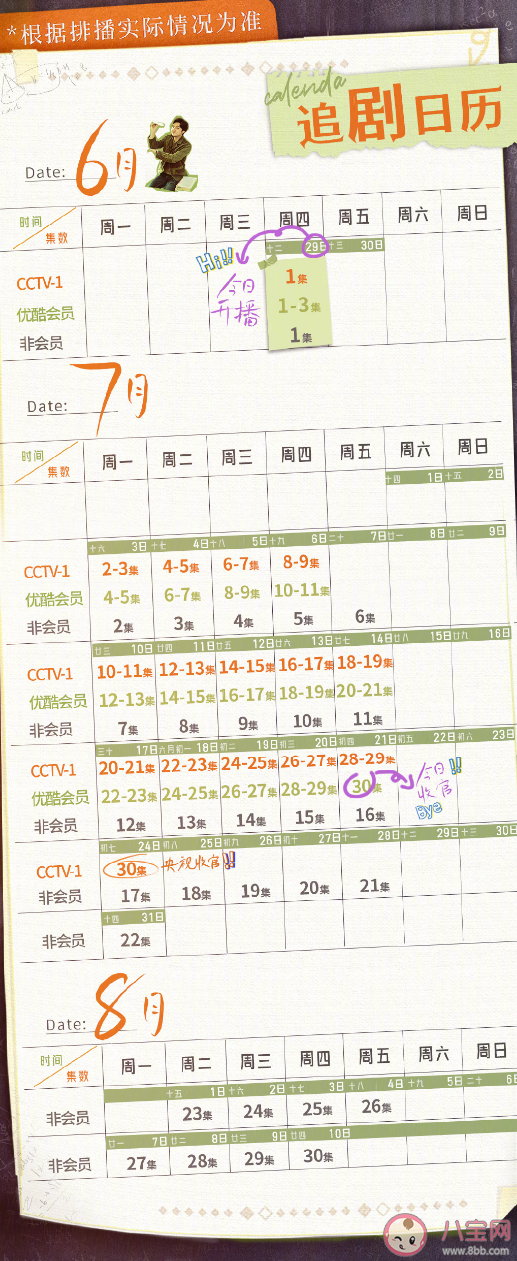 *根据排播实际情况为准
calenda
追剧日历
Date: 6月
时间 集数 周一 周二 周三 周四 周五 周六 周日
十二 29日 十三 30日
Hi!!
今日开播
CCTV-1 1集
优酷会员 1-3集
非会员 1集
Date: 7月
时间 集数 周一 周二 周三 周四 周五 周六 周日
十四 1日 十五 2日
十六 3日 十七 4日 十八 5日 十九 6日 二十 7日 廿一 8日 廿二 9日
CCTV-1 2-3集 4-5集 6-7集 8-9集
优酷会员 4-5集 6-7集 8-9集 10-11集
非会员 2集 3集 4集 5集 6集
廿三 10日 廿四 11日 廿五 12日 廿六 13日 廿七 14日 廿八 15日 廿九 16日
CCTV-1 10-11集 12-13集 14-15集 16-17集 18-19集
优酷会员 12-13集 14-15集 16-17集 18-19集 20-21集
非会员 7集 8集 9集 10集 11集
三十 17日 六月初一 18日 初二 19日 初三 20日 初四 21日 初五 22日 初六 23日
CCTV-1 20-21集 22-23集 24-25集 26-27集 28-29集
优酷会员 22-23集 24-25集 26-27集 28-29集 30集 今日收官!!
Bye
非会员 12集 13集 14集 15集 16集
初七 24日 初八 25日 初九 26日 初十 27日 十一 28日 十二 29日 十三 30日
CCTV-1 30集 央视收官!!
非会员 17集 18集 19集 20集 21集
十四 31日
非会员 22集
Date: 8月
时间 集数 周一 周二 周三 周四 周五 周六 周日
十五 1日 十六 2日 十七 3日 十八 4日 十九 5日 二十 6日
非会员 23集 24集 25集 26集
廿一 7日 廿二 8日 廿三 9日 廿四 10日
非会员 27集 28集 29集 30集
八宝网
www.8bb.com